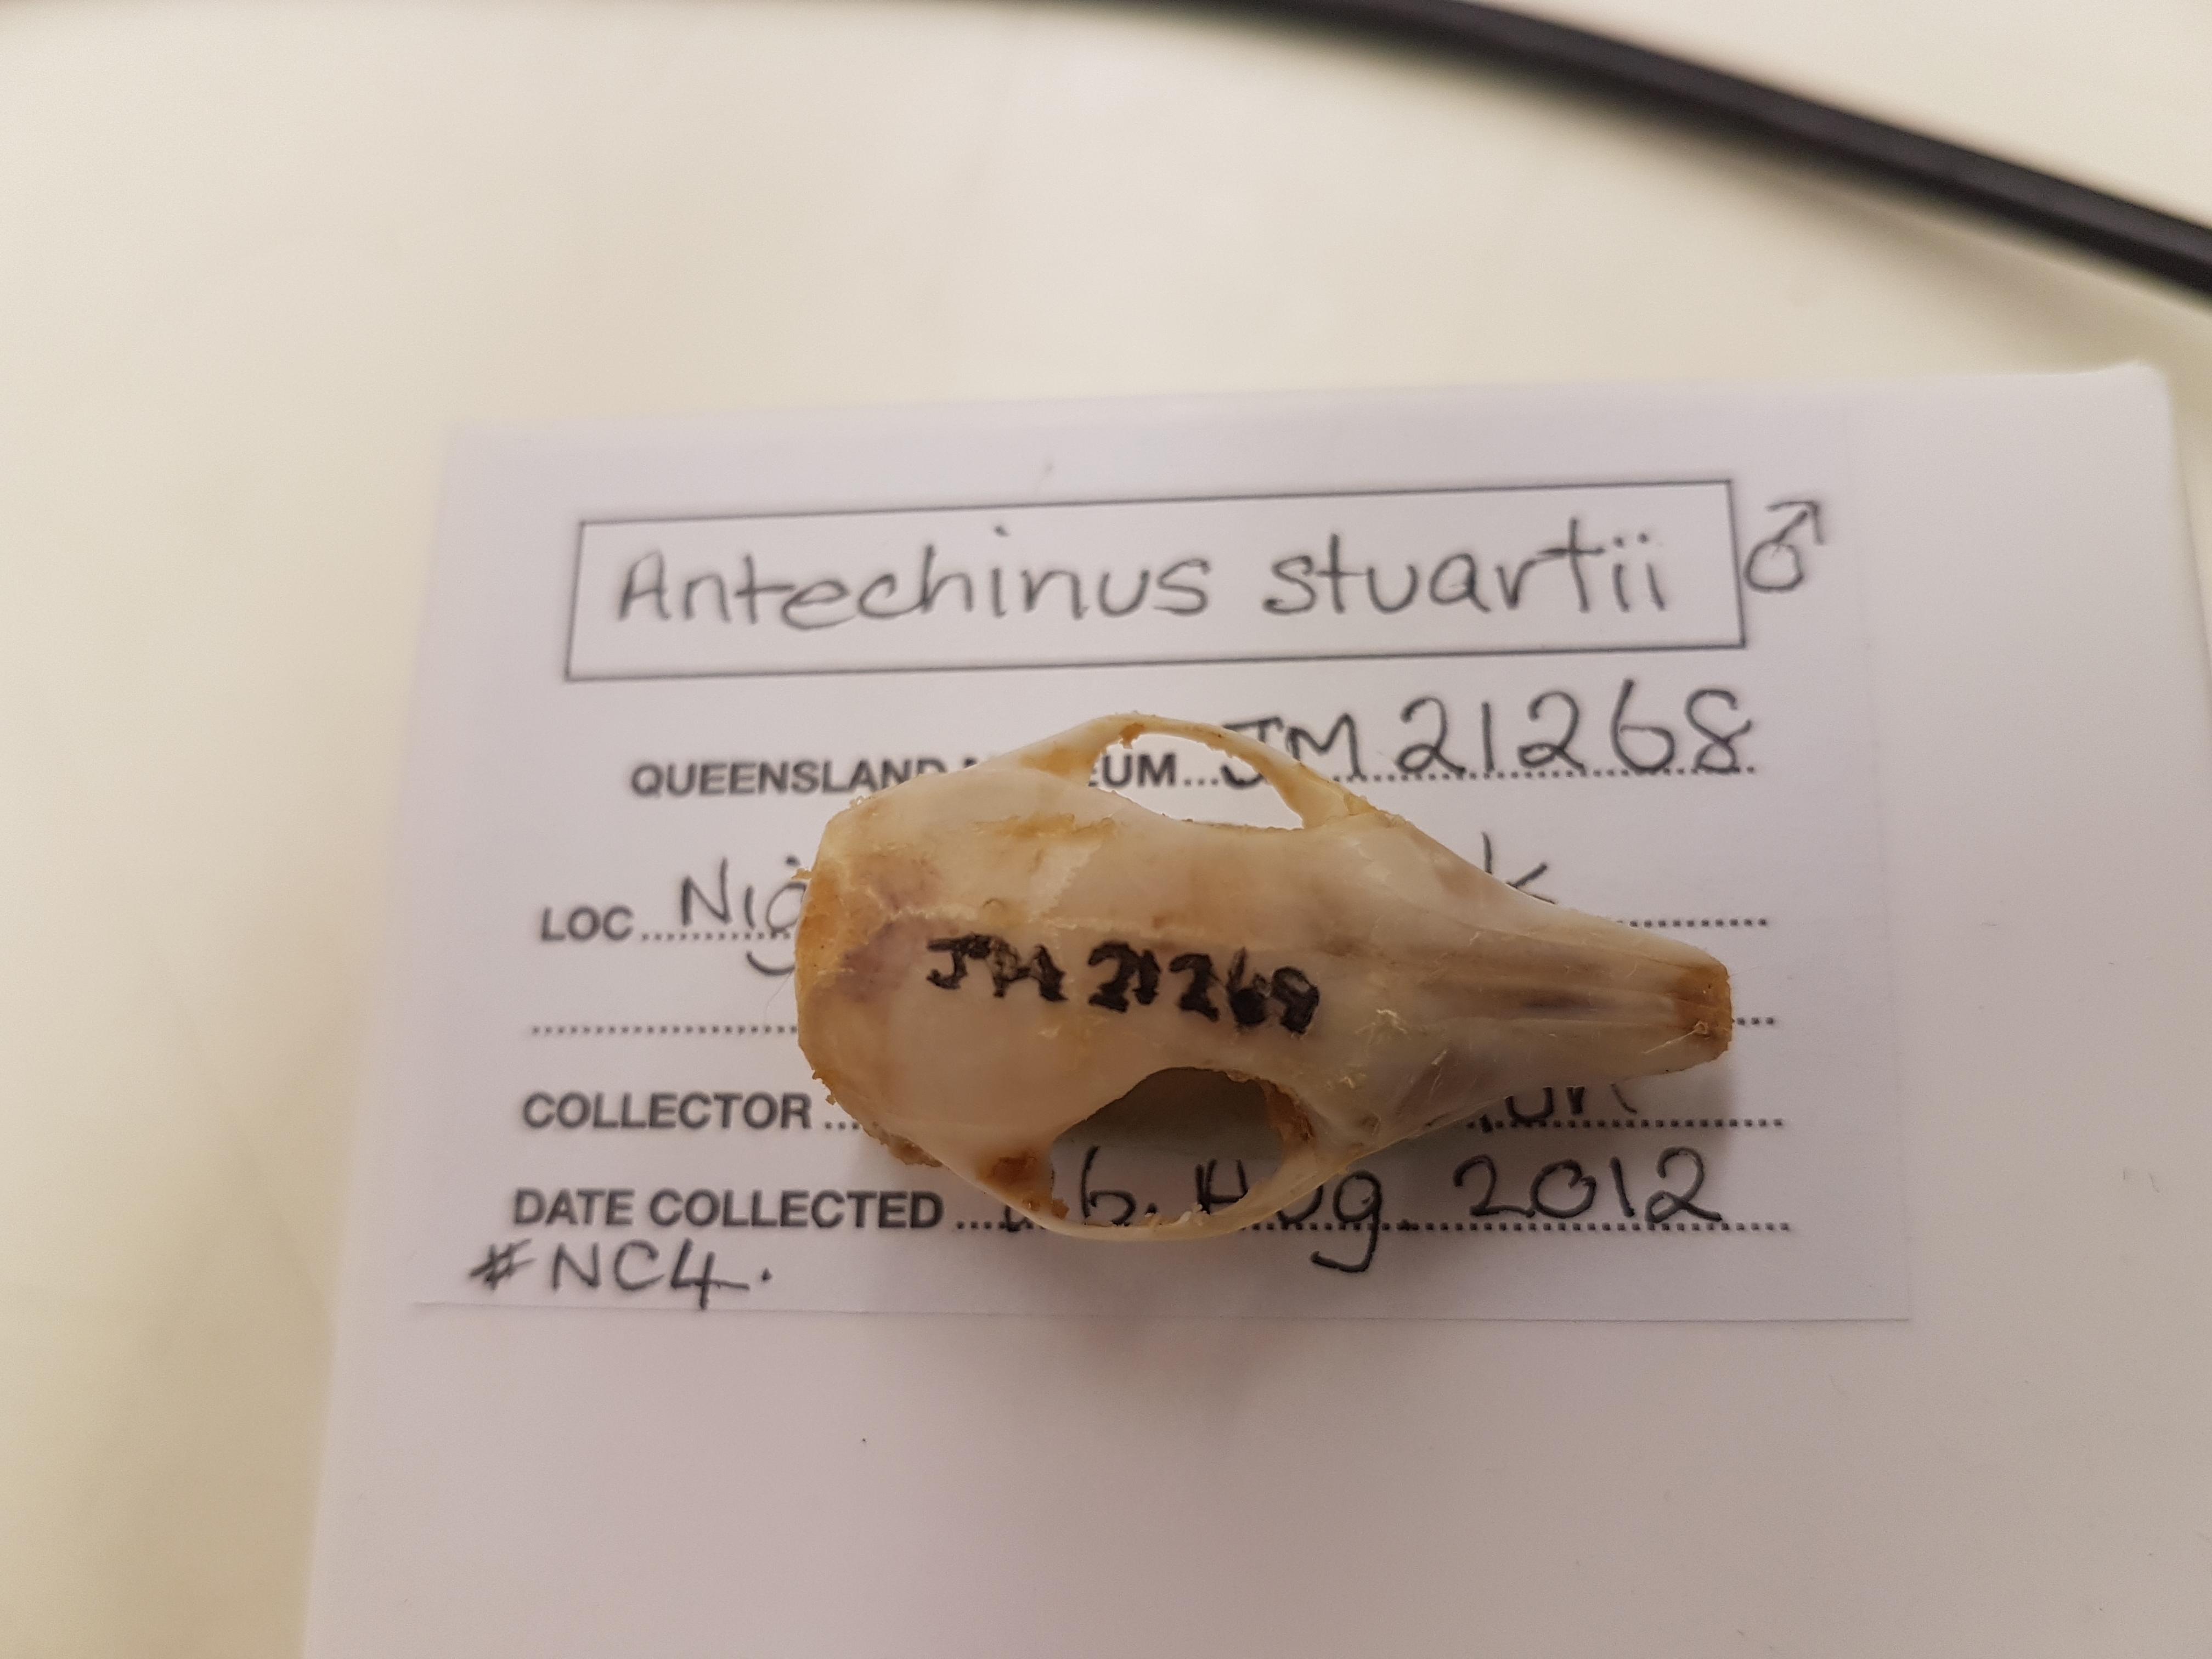 Antechinus stuartii ♂
QUEENSLAND JM 21268
LOC
COLLECTOR
DATE COLLECTED 2012
#NC4.
JM 21268